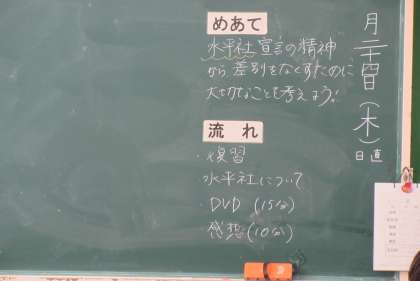 月二十四日(木)
日直
めあて
水平社宣言の精神
から差別をなくすために
大切なことを考えよう!
流れ
・復習
水平社について
・DVD(15分)
感想(10分)